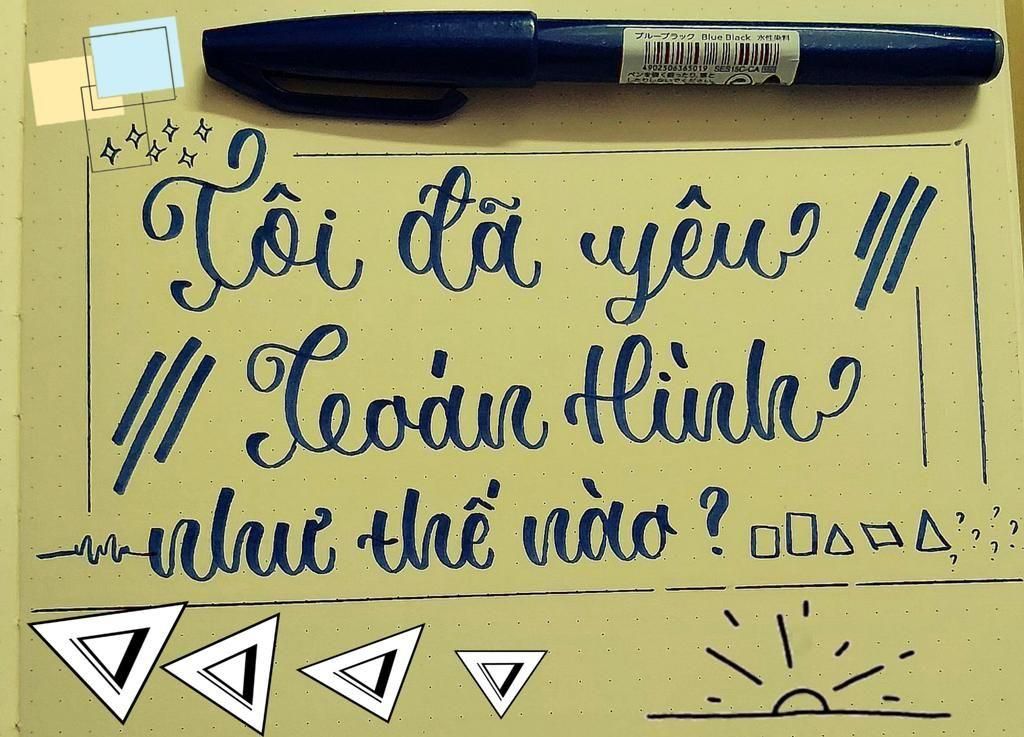 ブルーブラック Blue Black 水性染料
4902506365019 SES15C-CA
Tôi đã yêu
Toán Hình
như thế nào?